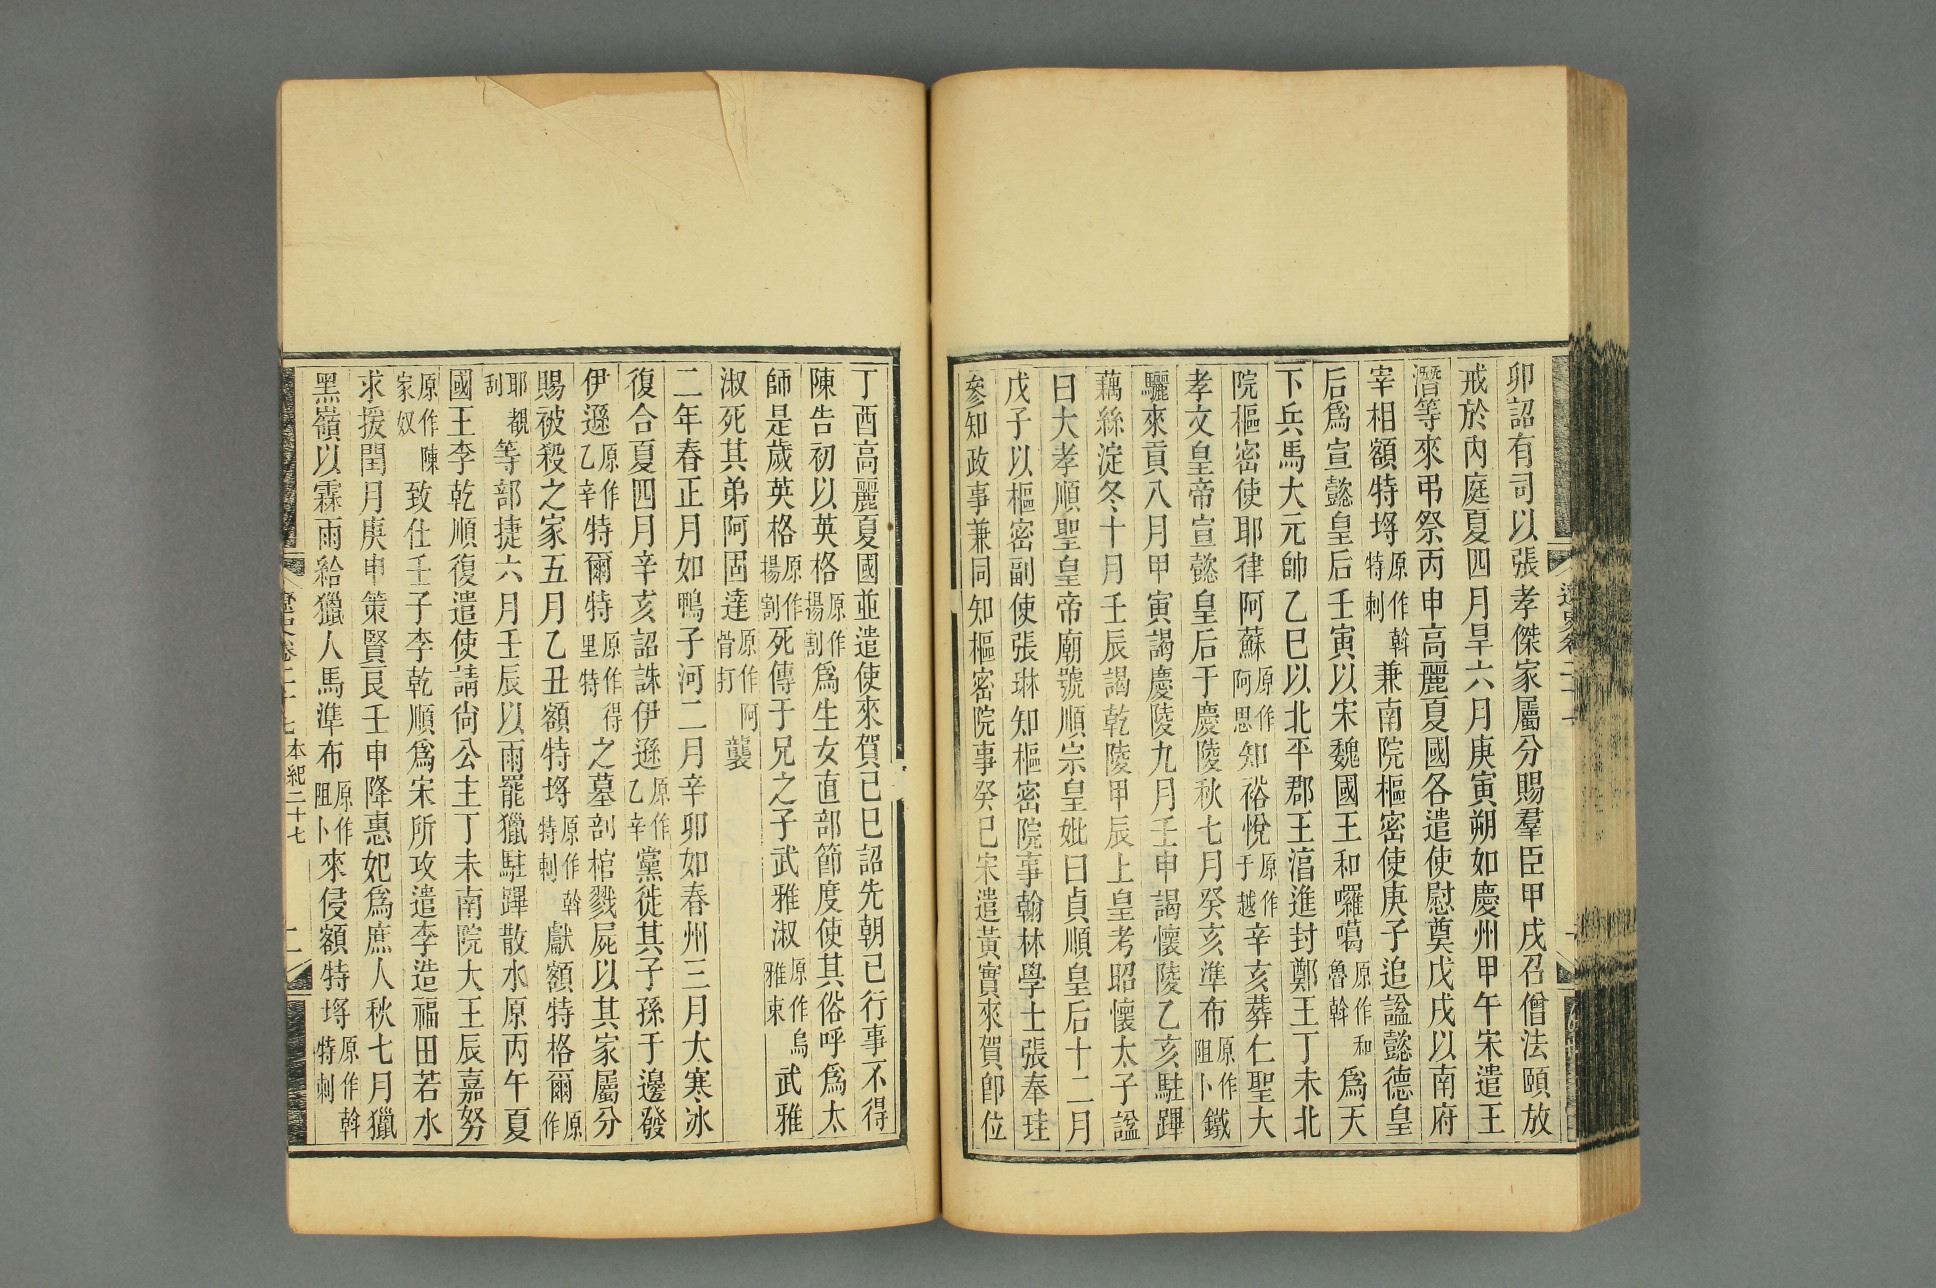 卯詔有司以張孝傑家屬分賜羣臣甲戌召僧法頤放
戒於內庭夏四月旱六月庚寅朔如慶州甲午宋遣王
潛等來弔祭丙申高麗夏國各遣使慰奠戊戌以南府
宰相額特埒原作斡特剌兼南院樞密使庚子追諡懿德皇
后為宣懿皇后壬寅以宋魏國王和囉噶原作和魯斡為天
下兵馬大元帥乙巳以北平郡王湻進封鄭王丁未北
院樞密使耶律阿蘇原作阿思知裕悅原作于越辛亥葬仁聖大
孝文皇帝宣懿皇后于慶陵秋七月癸亥準布原作阻卜鐵
驪來貢八月甲寅謁慶陵九月壬申謁懷陵乙亥駐蹕
藕絲淀冬十月壬辰謁乾陵甲辰上皇考昭懷太子諡
曰大孝順聖皇帝廟號順宗皇妣曰貞順皇后十二月
戊子以樞密副使張琳知樞密院事翰林學士張奉珪
參知政事兼同知樞密院事癸巳宋遣黃實來賀卽位
丁酉高麗夏國並遣使來賀己巳詔先朝已行事不得
陳告初以英格原作揚割為生女直部節度使其俗呼為太
師是歲英格原作揚割死傳于兄之子武雅淑原作烏雅束武雅
淑死其弟阿固達原作阿骨打襲
二年春正月如鴨子河二月辛卯如春州三月太寒冰
復合夏四月辛亥詔誅伊遜原作乙辛黨徙其子孫于邊發
伊遜原作乙辛特爾特原作得里特之墓剖棺戮屍以其家屬分
賜被殺之家五月乙丑額特埒原作斡特剌獻額特格爾原作
耶覩刮等部捷六月壬辰以雨罷獵駐蹕散水原丙午夏
國王李乾順復遣使請尚公主丁未南院大王辰嘉努
原作陳家奴致仕壬子李乾順為宋所攻遣李造福田若水
求援閏月庚申策賢良壬申降惠妃為庶人秋七月獵
黑嶺以霖雨給獵人馬準布原作阻卜來侵額特埒原作斡特剌
遼史卷二十七
本紀二十七
二